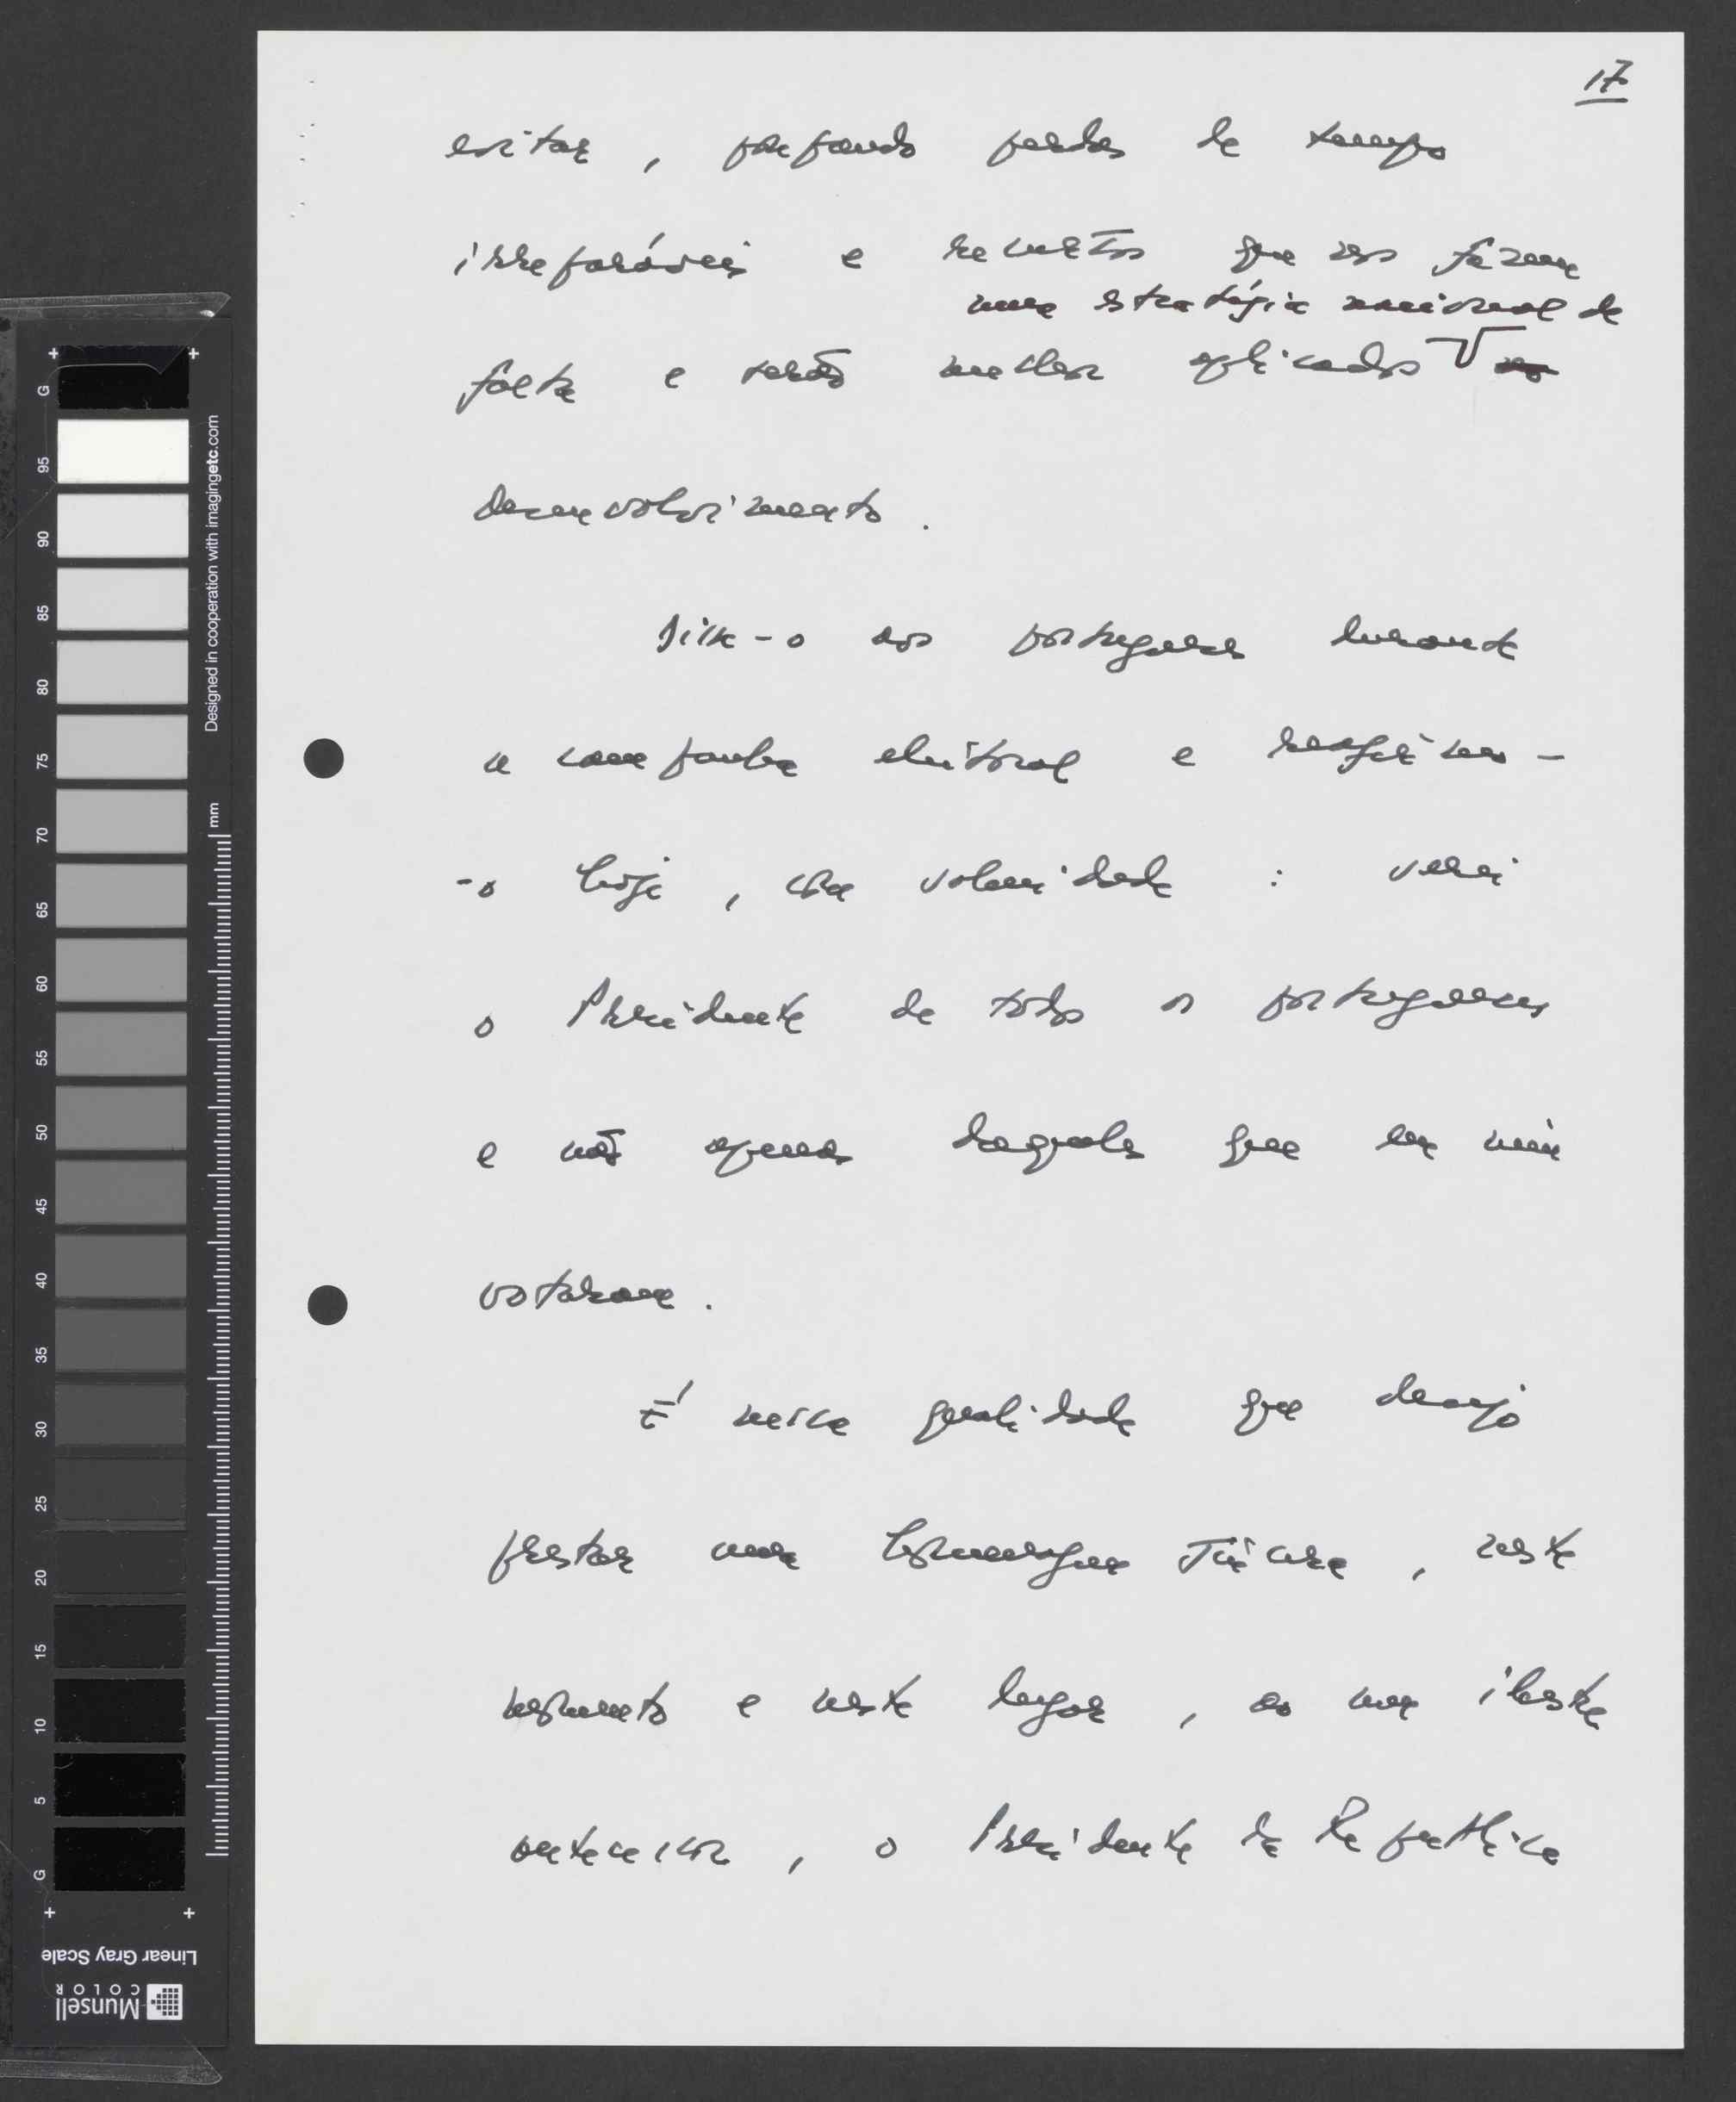 17
evitar, poupando perdas de tempo
irreparáveis e recursos que nos fazem
uma estratégia nacional de
falta e serão melhor aplicados
desenvolvimento.
Disse-o aos portugueses durante
a campanha eleitoral e reafirmo-
-o hoje, com solenidade : serei
o Presidente de todos os portugueses
e não apenas daqueles que em mim
votaram.
É nessa qualidade que desejo
prestar uma homenagem sincera, neste
momento e neste lugar, ao meu ilustre
antecessor, o Presidente da República
G
95
90
85
80
75
70
65
60
55
50
45
40
35
30
25
20
15
10
5
G
Designed in cooperation with imagingetc.com
mm
Linear Gray Scale
Munsell
COLOR